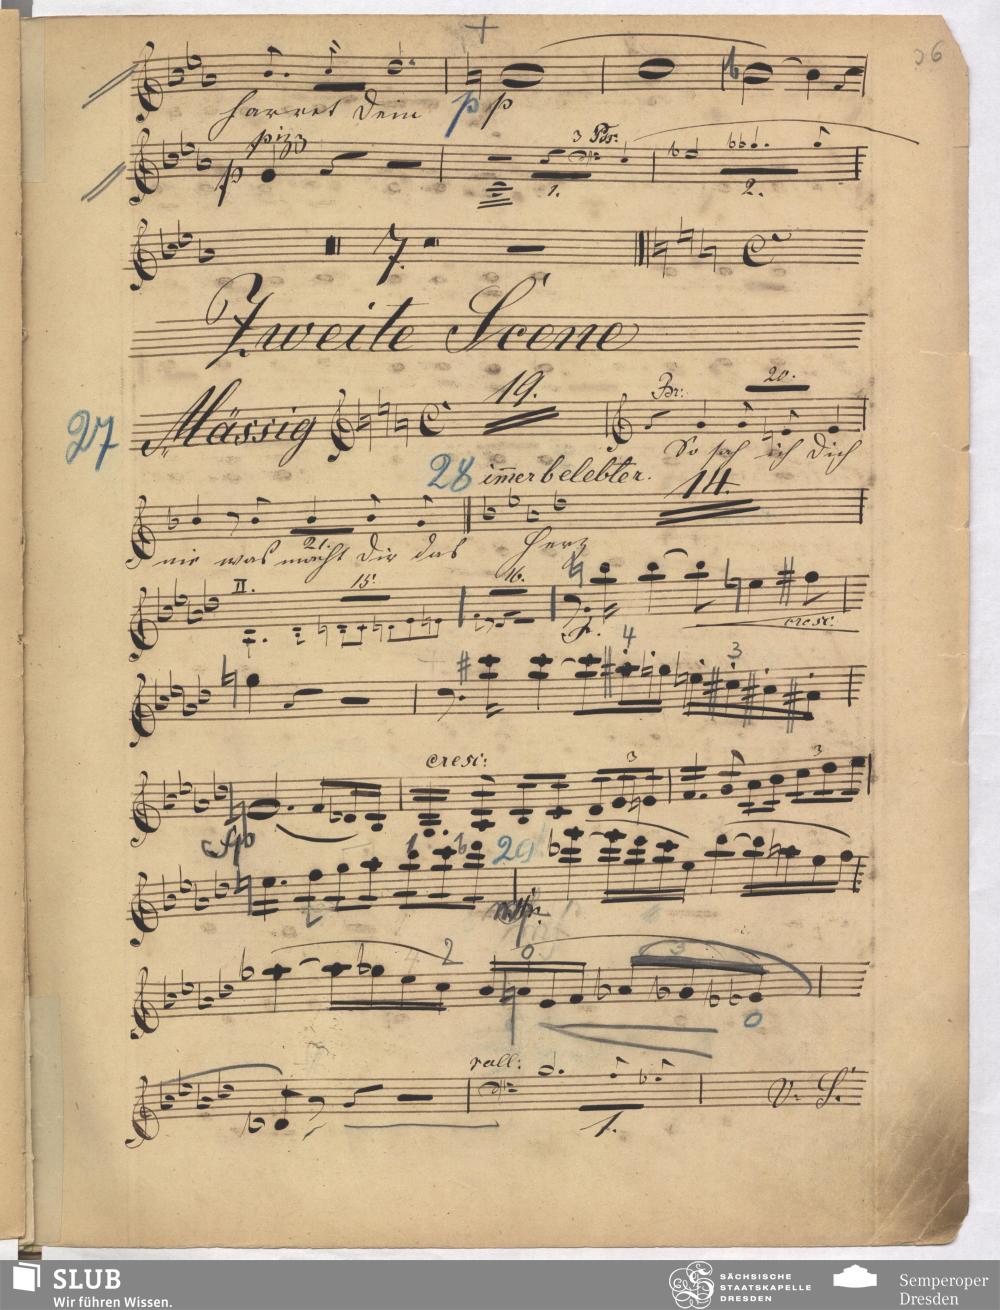 36
harret dein pp
p pizz 3 Pos:
1. 2.
7.
Zweite Scene
19. Br: 20.
27 Mässig So sah ich dich
28 immer belebter. 14.
nie was macht dir das Herz
21.
II. 15. 16.
cresc:
4 3
cresc: 3 3
sfp
1 29
mf
4 2 0 3
0
rall:
1. V. S.
SLUB
Wir führen Wissen.
SÄCHSISCHE
STAATSKAPELLE
DRESDEN
Semperoper
Dresden